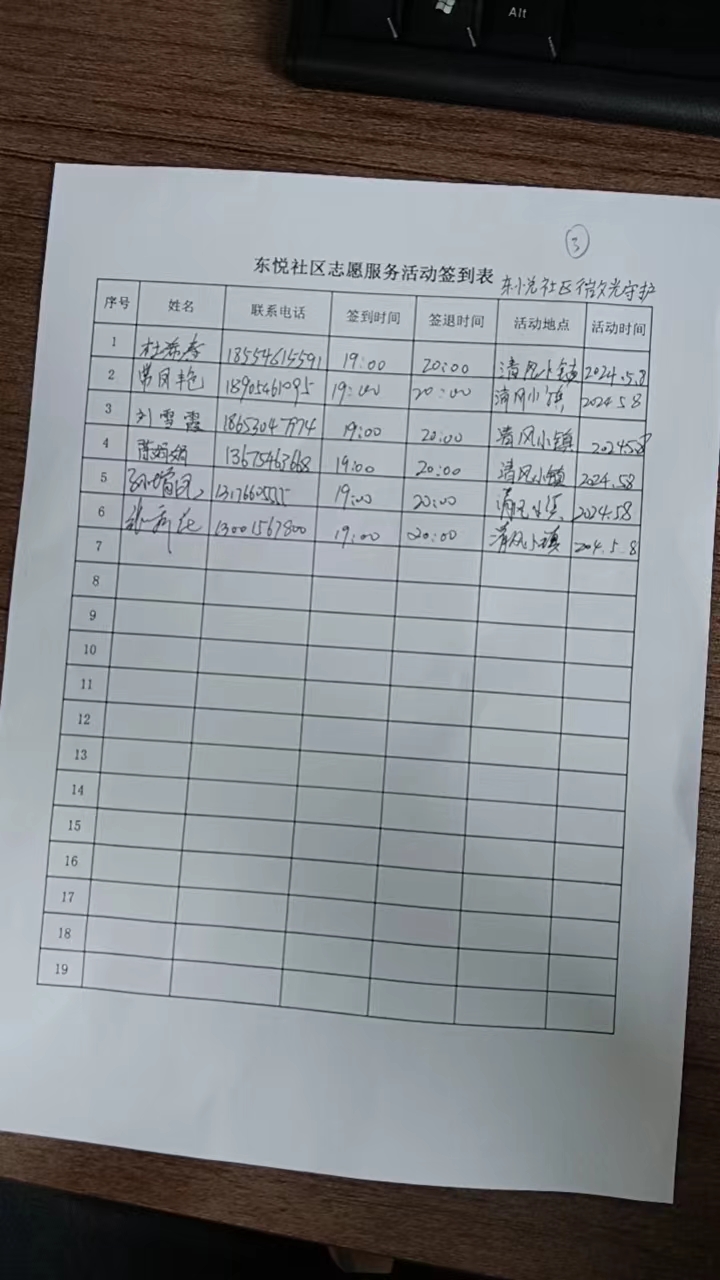 Alt
3
东悦社区志愿服务活动签到表 东悦社区微光守护
序号 姓名 联系电话 签到时间 签退时间 活动地点 活动时间
1 18554615591 19:00 20:00 清风小镇 2024.5.8
2 常凤艳 18905461095 19:00 20:00 清风小镇 2024.5.8
3 刘雪霞 19:00 20:00 清风小镇 2024.5.8
4 陈娟娟 13675463668 19:00 20:00 清风小镇 2024.5.8
5 19:00 20:00 清风小镇 2024.5.8
6 13001567800 19:00 20:00 清风小镇 204.5.8
7
8
9
10
11
12
13
14
15
16
17
18
19